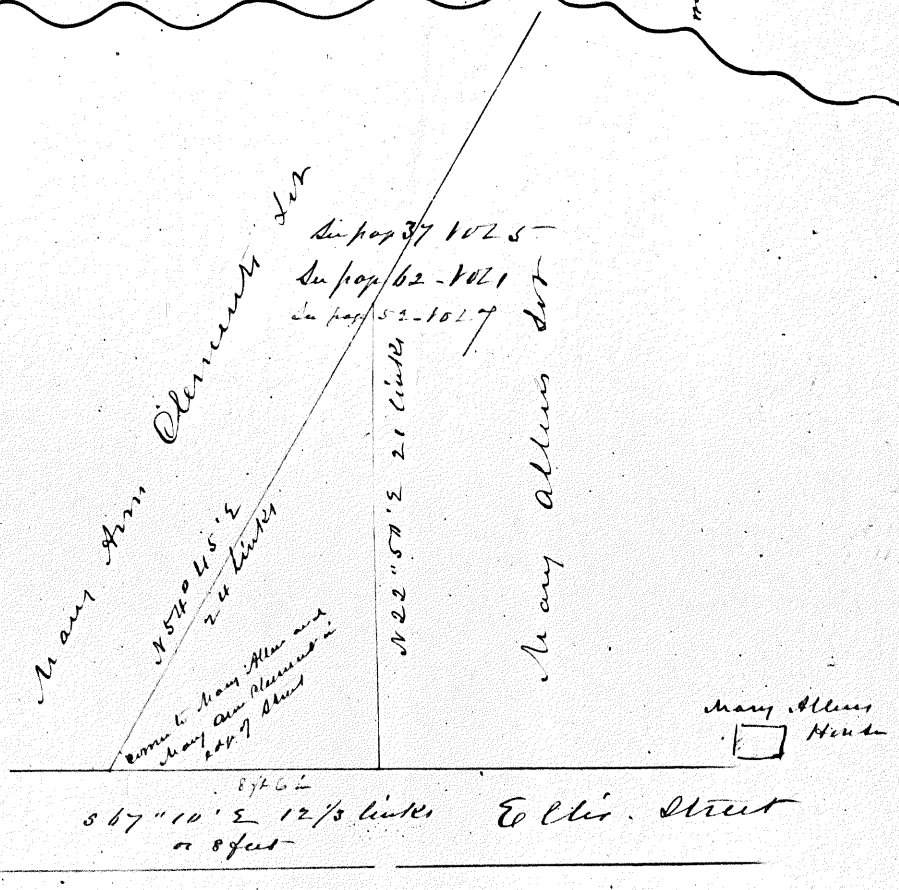 Mary Ann Clements Lot
See page 37 Vol 5
See page 62 - Vol 1
See page 52 - Vol 7
Mary Allens Lot
N 54° 45' E
24 links
N 22" 50' E 21 links
corner to Mary Allen and
Mary Ann Clements in
edg. of Street
Mary Allens
House
8 ft 6 in
S 67" 10' E 12 1/3 links
or 8 feet
Ellis. Street